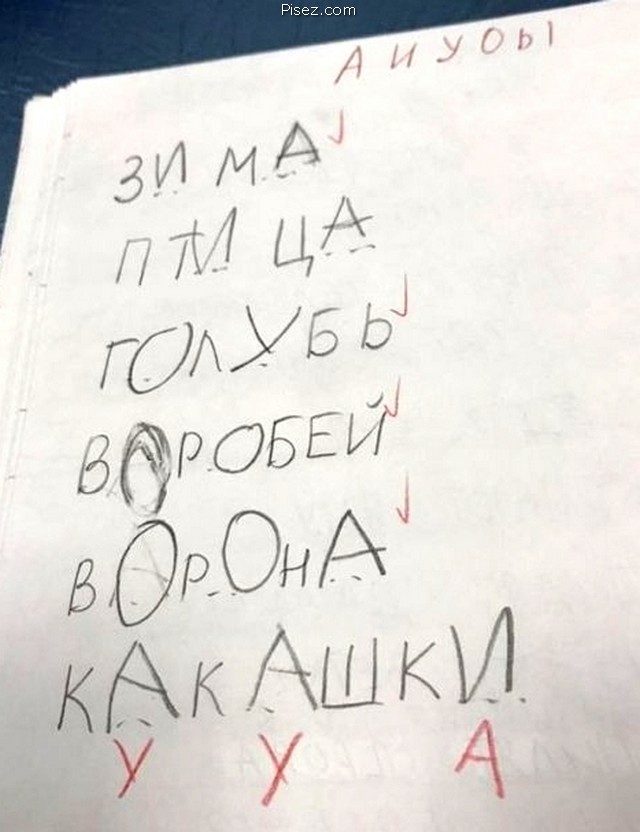 Pisez.com
А И У О Ы
ЗИМА
ПТИЦА
ГОЛУБЬ
ВОРОБЕЙ
ВОРОНА
КАКАШКИ
У У А